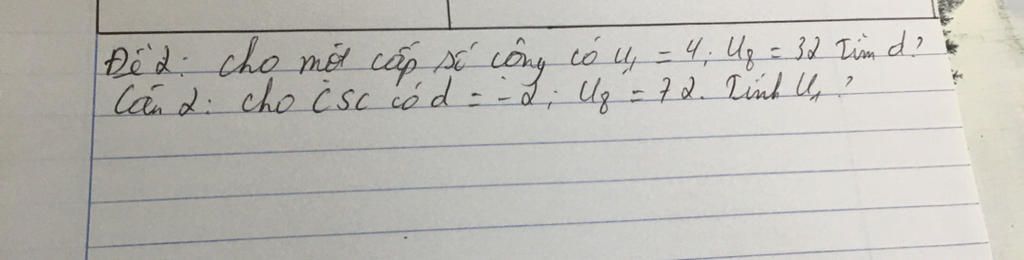 Đề 2: cho một cấp số công có u₁ = 4; U₈ = 32 Tìm d?
Câu 2: cho CSC có d = -2; U₈ = 72. Tính U₁?